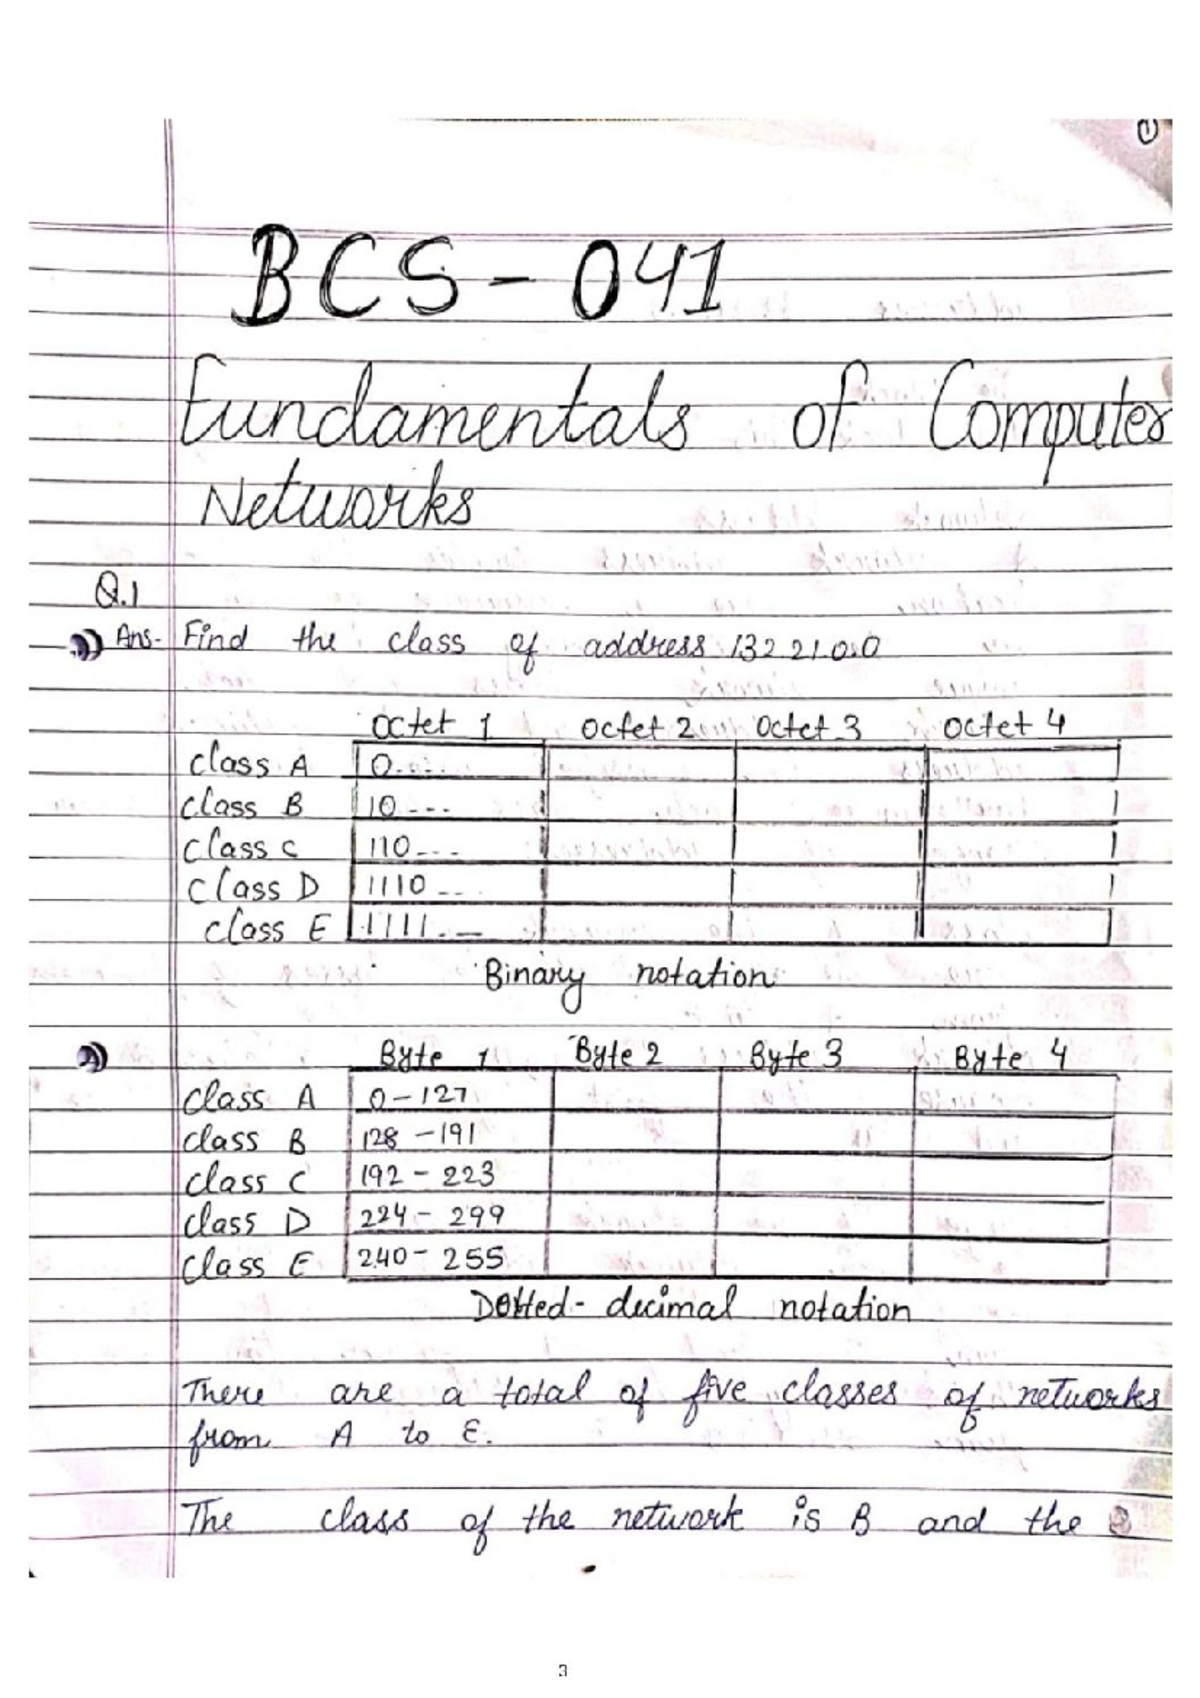 ①
BCS - 041
Fundamentals of Computer
Networks
Q.1
Ans- Find the class of address 132 21.0.0
Octet 1 Octet 2 Octet 3 Octet 4
class A 0.....
class B 10 ---
class c 110 ---
class D 1110 --
class E 1111.--
Binary notation
Byte 1 Byte 2 Byte 3 Byte 4
class A 0 - 127
class B 128 - 191
class C 192 - 223
class D 224 - 299
class E 240 - 255
Dotted - decimal notation
There are a total of five classes of networks
from A to E.
The class of the network is B and the
3